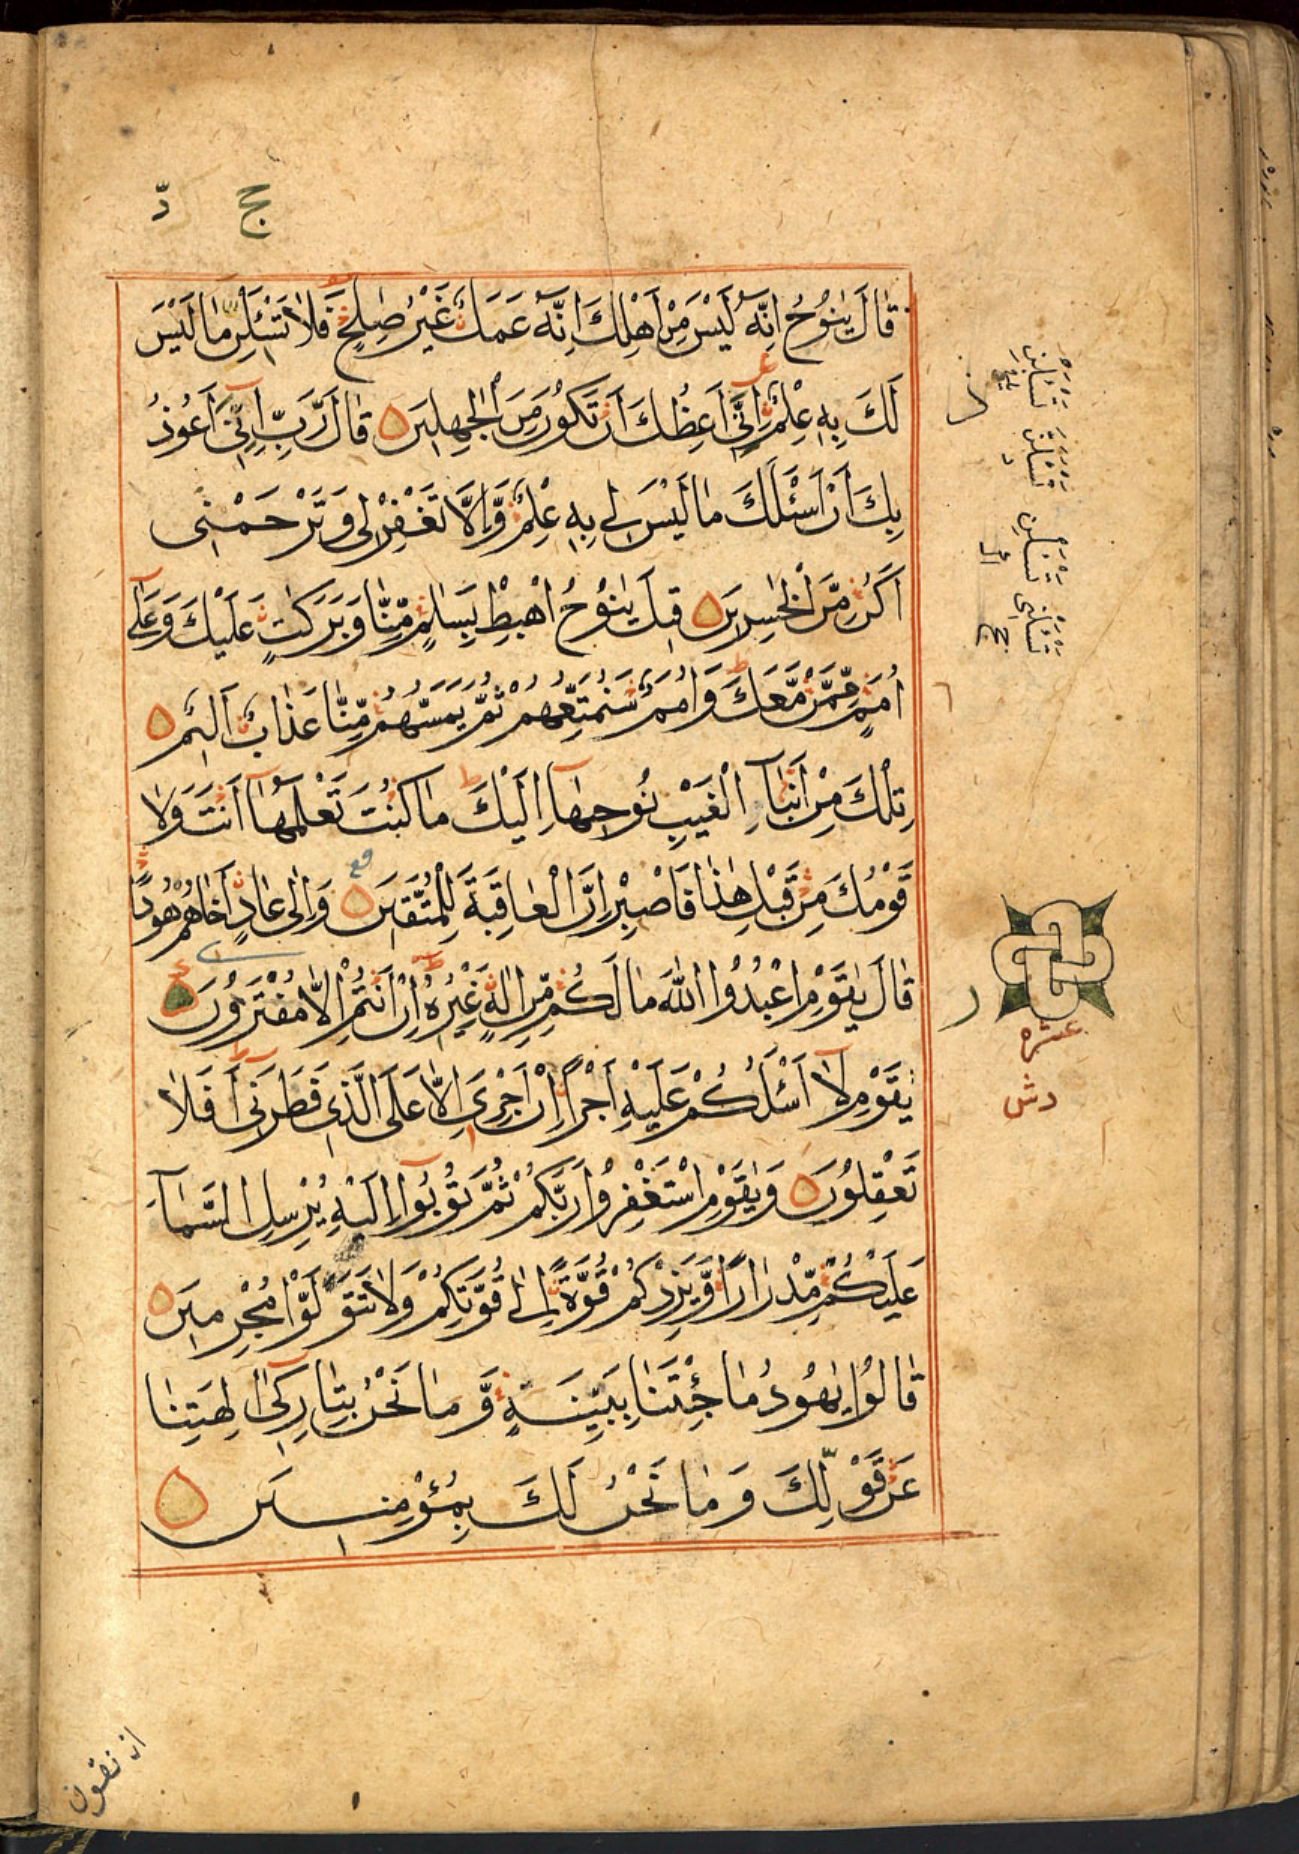 قَالَ يٰنُوْحُ اِنَّهٗ لَيْسَ مِنْ اَهْلِكَ اِنَّهٗ عَمَلٌ غَيْرُ صٰلِحٍ فَلَا تَسْـَٔلْنِ مَا لَيْسَ
لَكَ بِهٖ عِلْمٌ اِنِّيْ اَعِظُكَ اَنْ تَكُوْنَ مِنَ الْجٰهِلِيْنَ قَالَ رَبِّ اِنِّيْ اَعُوْذُ
بِكَ اَنْ اَسْـَٔلَكَ مَا لَيْسَ لِيْ بِهٖ عِلْمٌ وَّاِلَّا تَغْفِرْ لِيْ وَتَرْحَمْنِيْ
اَكُنْ مِّنَ الْخٰسِرِيْنَ قِيْلَ يٰنُوْحُ اهْبِطْ بِسَلٰمٍ مِّنَّا وَبَرَكٰتٍ عَلَيْكَ وَعَلٰٓى
اُمَمٍ مِّمَّنْ مَّعَكَ وَاُمَمٌ سَنُمَتِّعُهُمْ ثُمَّ يَمَسُّهُمْ مِّنَّا عَذَابٌ اَلِيْمٌ
تِلْكَ مِنْ اَنْۢبَآءِ الْغَيْبِ نُوْحِيْهَآ اِلَيْكَ مَا كُنْتَ تَعْلَمُهَآ اَنْتَ وَلَا
قَوْمُكَ مِنْ قَبْلِ هٰذَا فَاصْبِرْ اِنَّ الْعَاقِبَةَ لِلْمُتَّقِيْنَ وَاِلٰى عَادٍ اَخَاهُمْ هُوْدًا
قَالَ يٰقَوْمِ اعْبُدُوا اللّٰهَ مَا لَكُمْ مِّنْ اِلٰهٍ غَيْرُهٗ اِنْ اَنْتُمْ اِلَّا مُفْتَرُوْنَ
يٰقَوْمِ لَآ اَسْـَٔلُكُمْ عَلَيْهِ اَجْرًا اِنْ اَجْرِيَ اِلَّا عَلَى الَّذِيْ فَطَرَنِيْ اَفَلَا
تَعْقِلُوْنَ وَيٰقَوْمِ اسْتَغْفِرُوْا رَبَّكُمْ ثُمَّ تُوْبُوْٓا اِلَيْهِ يُرْسِلِ السَّمَآءَ
عَلَيْكُمْ مِّدْرَارًا وَّيَزِدْكُمْ قُوَّةً اِلٰى قُوَّتِكُمْ وَلَا تَتَوَلَّوْا مُجْرِمِيْنَ
قَالُوْا يٰهُوْدُ مَا جِئْتَنَا بِبَيِّنَةٍ وَّمَا نَحْنُ بِتَارِكِيْٓ اٰلِهَتِنَا
عَنْ قَوْلِكَ وَمَا نَحْنُ لَكَ بِمُؤْمِنِيْنَ
عشره
ان نقول